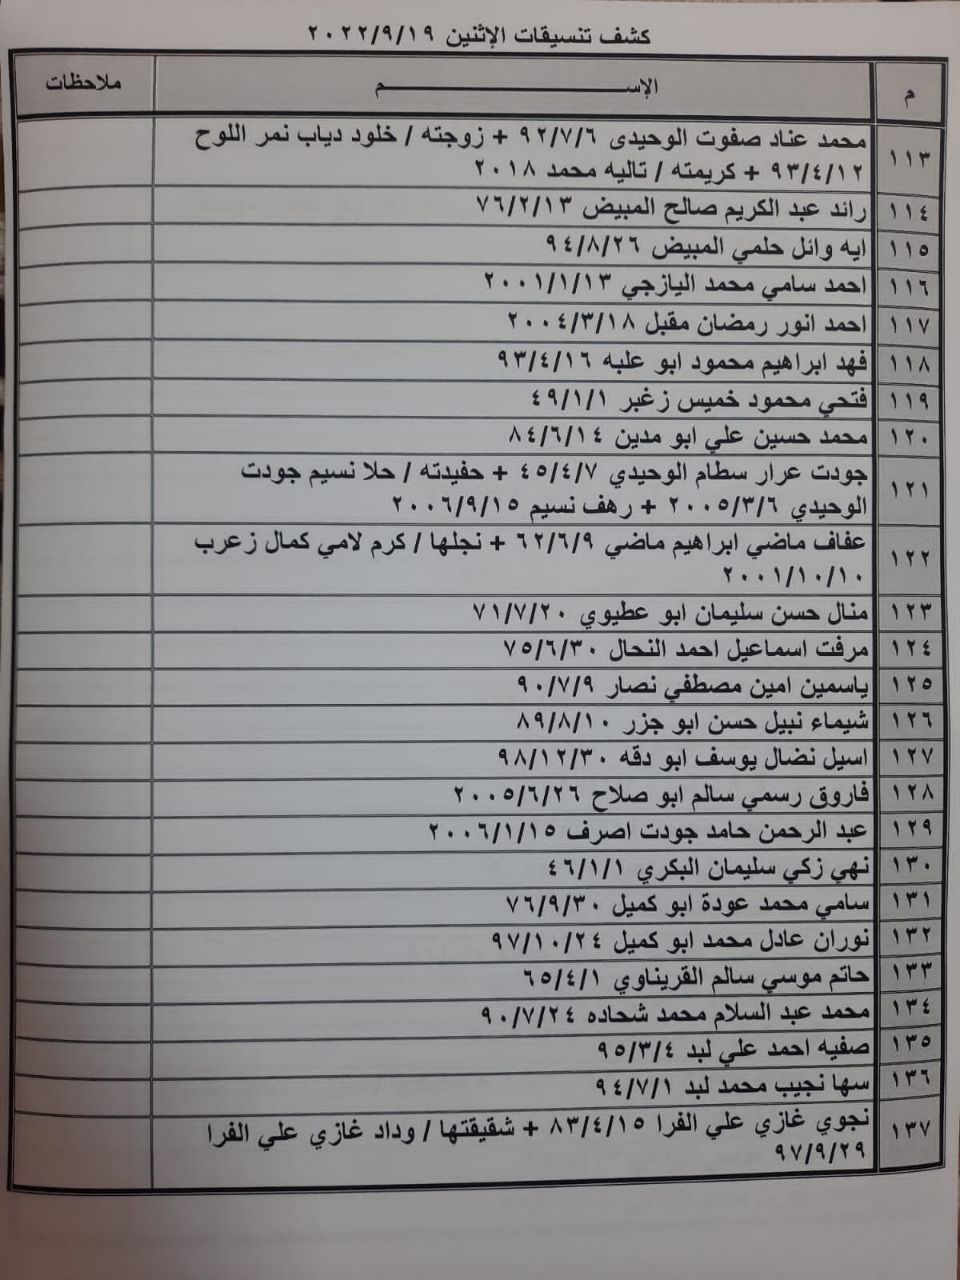 كشف تنسيقات الإثنين ٢٠٢٢/٩/١٩
م الإســـــــــم ملاحظات
١١٣ محمد عناد صفوت الوحيدى ٩٢/٧/٦ + زوجته / خلود دياب نمر اللوح
٩٣/٤/١٢ + كريمته / تاليه محمد ٢٠١٨
١١٤ رائد عبد الكريم صالح المبيض ٧٦/٢/١٣
١١٥ ايه وائل حلمي المبيض ٩٤/٨/٢٦
١١٦ احمد سامي محمد اليازجي ٢٠٠١/١/١٣
١١٧ احمد انور رمضان مقبل ٢٠٠٤/٣/١٨
١١٨ فهد ابراهيم محمود ابو علبه ٩٣/٤/١٦
١١٩ فتحي محمود خميس زغبر ٤٩/١/١
١٢٠ محمد حسين علي ابو مدين ٨٤/٦/١٤
١٢١ جودت عرار سطام الوحيدي ٤٥/٤/٧ + حفيدته / حلا نسيم جودت
الوحيدي ٢٠٠٥/٣/٦ + رهف نسيم ٢٠٠٦/٩/١٥
١٢٢ عفاف ماضي ابراهيم ماضي ٦٢/٦/٩ + نجلها / كرم لامي كمال زعرب
٢٠٠١/١٠/١٠
١٢٣ منال حسن سليمان ابو عطيوي ٧١/٧/٢٠
١٢٤ مرفت اسماعيل احمد النحال ٧٥/٦/٣٠
١٢٥ ياسمين امين مصطفي نصار ٩٠/٧/٩
١٢٦ شيماء نبيل حسن ابو جزر ٨٩/٨/١٠
١٢٧ اسيل نضال يوسف ابو دقه ٩٨/١٢/٣٠
١٢٨ فاروق رسمي سالم ابو صلاح ٢٠٠٥/٦/٢٦
١٢٩ عبد الرحمن حامد جودت اصرف ٢٠٠٦/١/١٥
١٣٠ نهي زكي سليمان البكري ٤٦/١/١
١٣١ سامي محمد عودة ابو كميل ٧٦/٩/٣٠
١٣٢ نوران عادل محمد ابو كميل ٩٧/١٠/٢٤
١٣٣ حاتم موسي سالم القريناوي ٦٥/٤/١
١٣٤ محمد عبد السلام محمد شحاده ٩٠/٧/٢٤
١٣٥ صفيه احمد علي لبد ٩٥/٣/٤
١٣٦ سها نجيب محمد لبد ٩٤/٧/١
١٣٧ نجوي غازي علي الفرا ٨٣/٤/١٥ + شقيقتها / وداد غازي علي الفرا
٩٧/٩/٢٩